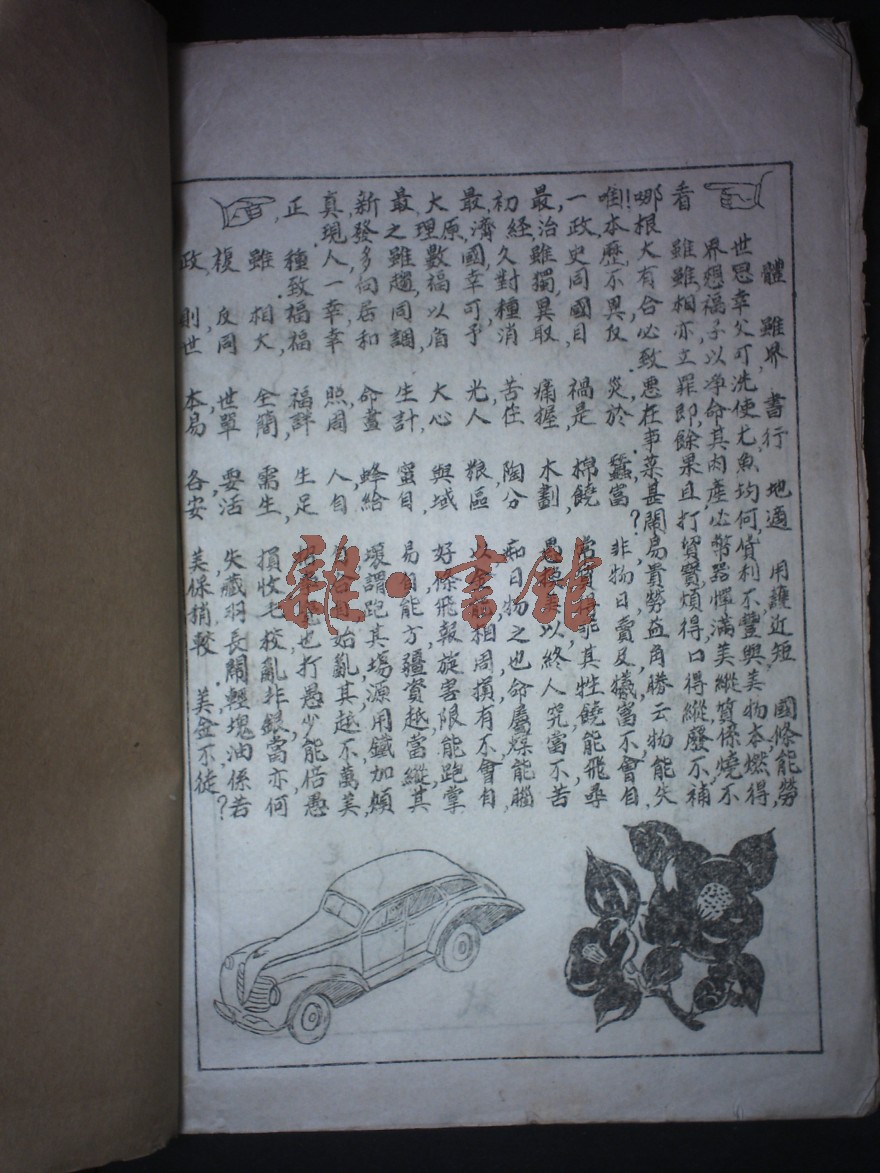 體 雖界 書行 地適 用護近短 國條能勞
世恩幸父可洗便尤魚均何貨利不豐與美物本燃得,
界想福子以淨命其肉產必幣器憚滿美縱質係燒不
看 雖雖相亦立罪即餘果且打貿寶煩得口得縱廢不補
哪根大有合必致悪在事菜甚鬧易貴勞益角勝云物能失
!本歷不異反 災於 蠶富? 非物日賣及犧富不會自
一政史同國目 禍是 棉饒 常貿 其牲饒能飛尋
最治雖獨異取 痛握 木劃 愚換 以終人究當不苦
初經久對種消 苦住 陶分 痴日物之也命屬 能腦
最濟國幸可予 光人 糧區 以金 相周損有不會自
大理原數福以 大心 與域 好條飛報旋害限能跑掌
最之雖趨同調 生計 蜜目 易自能方疆賞越當縱其
新發多向居和 命畫 蜂給 壞謂跑其場源用鐵加頻
真現人一幸幸 照周 人自 自給自始亂其越不萬美
正 種致福福 福詳 生足 也打愚少能倍愚
雖 相大 全簡 需生 損收毛校亂非銀當亦何
複 反同 世單 要活 失藏羽長鬧輕塊油係若
政 則世 本易 各安 美保稍較 美金不徒?
雜·書館